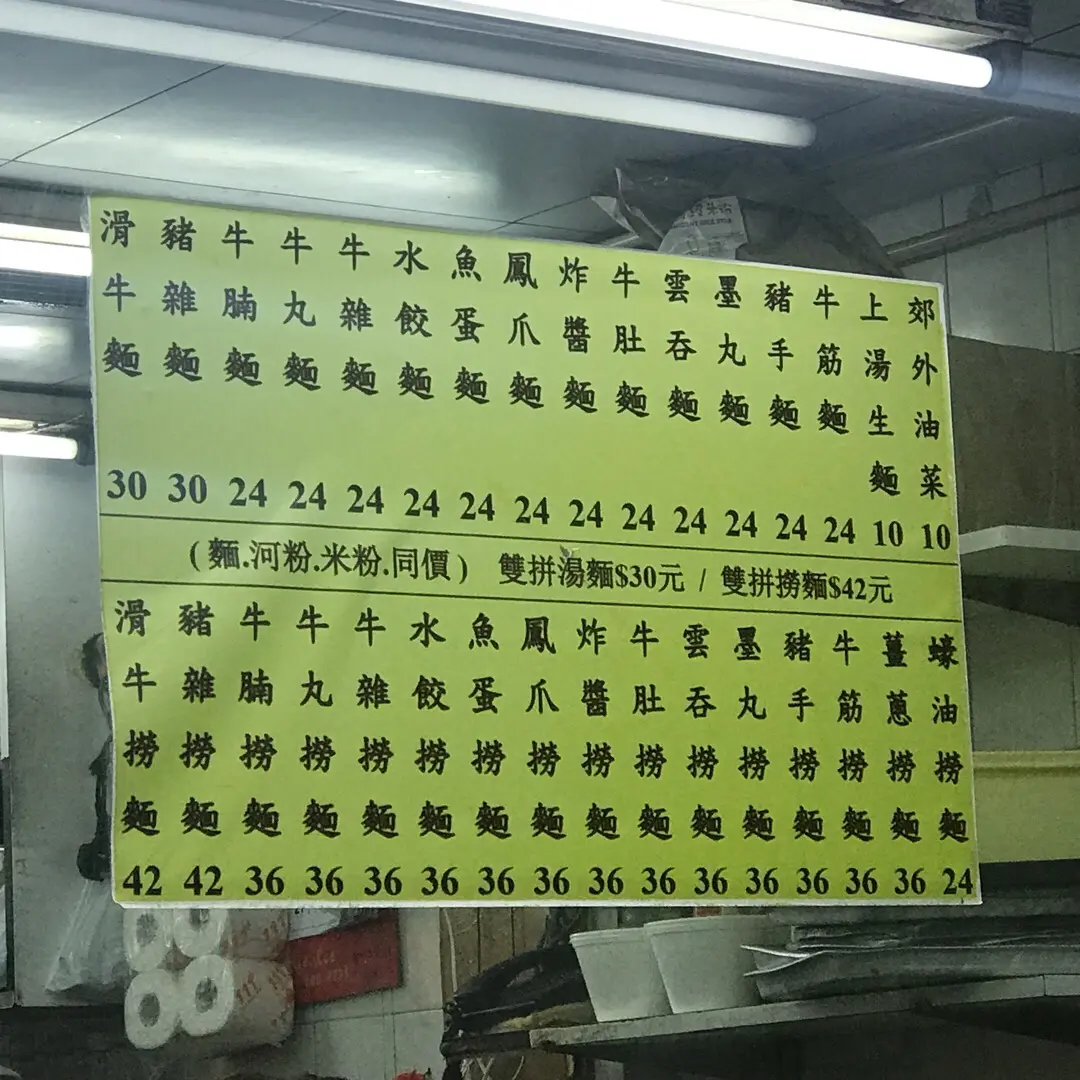 滑牛麵 30
豬雜麵 30
牛腩麵 24
牛丸麵 24
牛雜麵 24
水餃麵 24
魚蛋麵 24
鳳爪麵 24
炸醬麵 24
牛肚麵 24
雲吞麵 24
墨丸麵 24
豬手麵 24
牛筋麵 24
上湯生麵 10
郊外油菜 10
(麵.河粉.米粉.同價) 雙拼湯麵$30元 / 雙拼撈麵$42元
滑牛撈麵 42
豬雜撈麵 42
牛腩撈麵 36
牛丸撈麵 36
牛雜撈麵 36
水餃撈麵 36
魚蛋撈麵 36
鳳爪撈麵 36
炸醬撈麵 36
牛肚撈麵 36
雲吞撈麵 36
墨丸撈麵 36
豬手撈麵 36
牛筋撈麵 36
薑蔥撈麵 36
蠔油撈麵 24